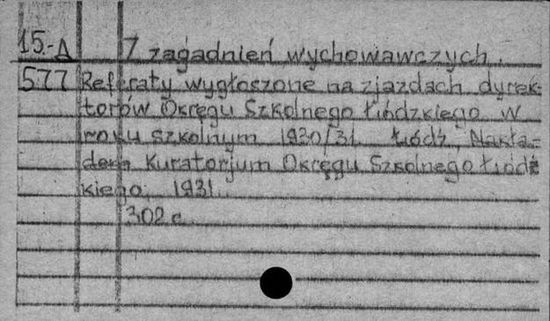 15.-A Z zagadnień wychowawczych.
577 Referaty wygłoszone na zjazdach dyrek-
torów Okręgu Szkolnego Łódzkiego w
roku szkolnym 1930/31. Łódź, Nakła-
dem Kuratorjum Okręgu Szkolnego Łódz-
kiego 1931.
302 c.